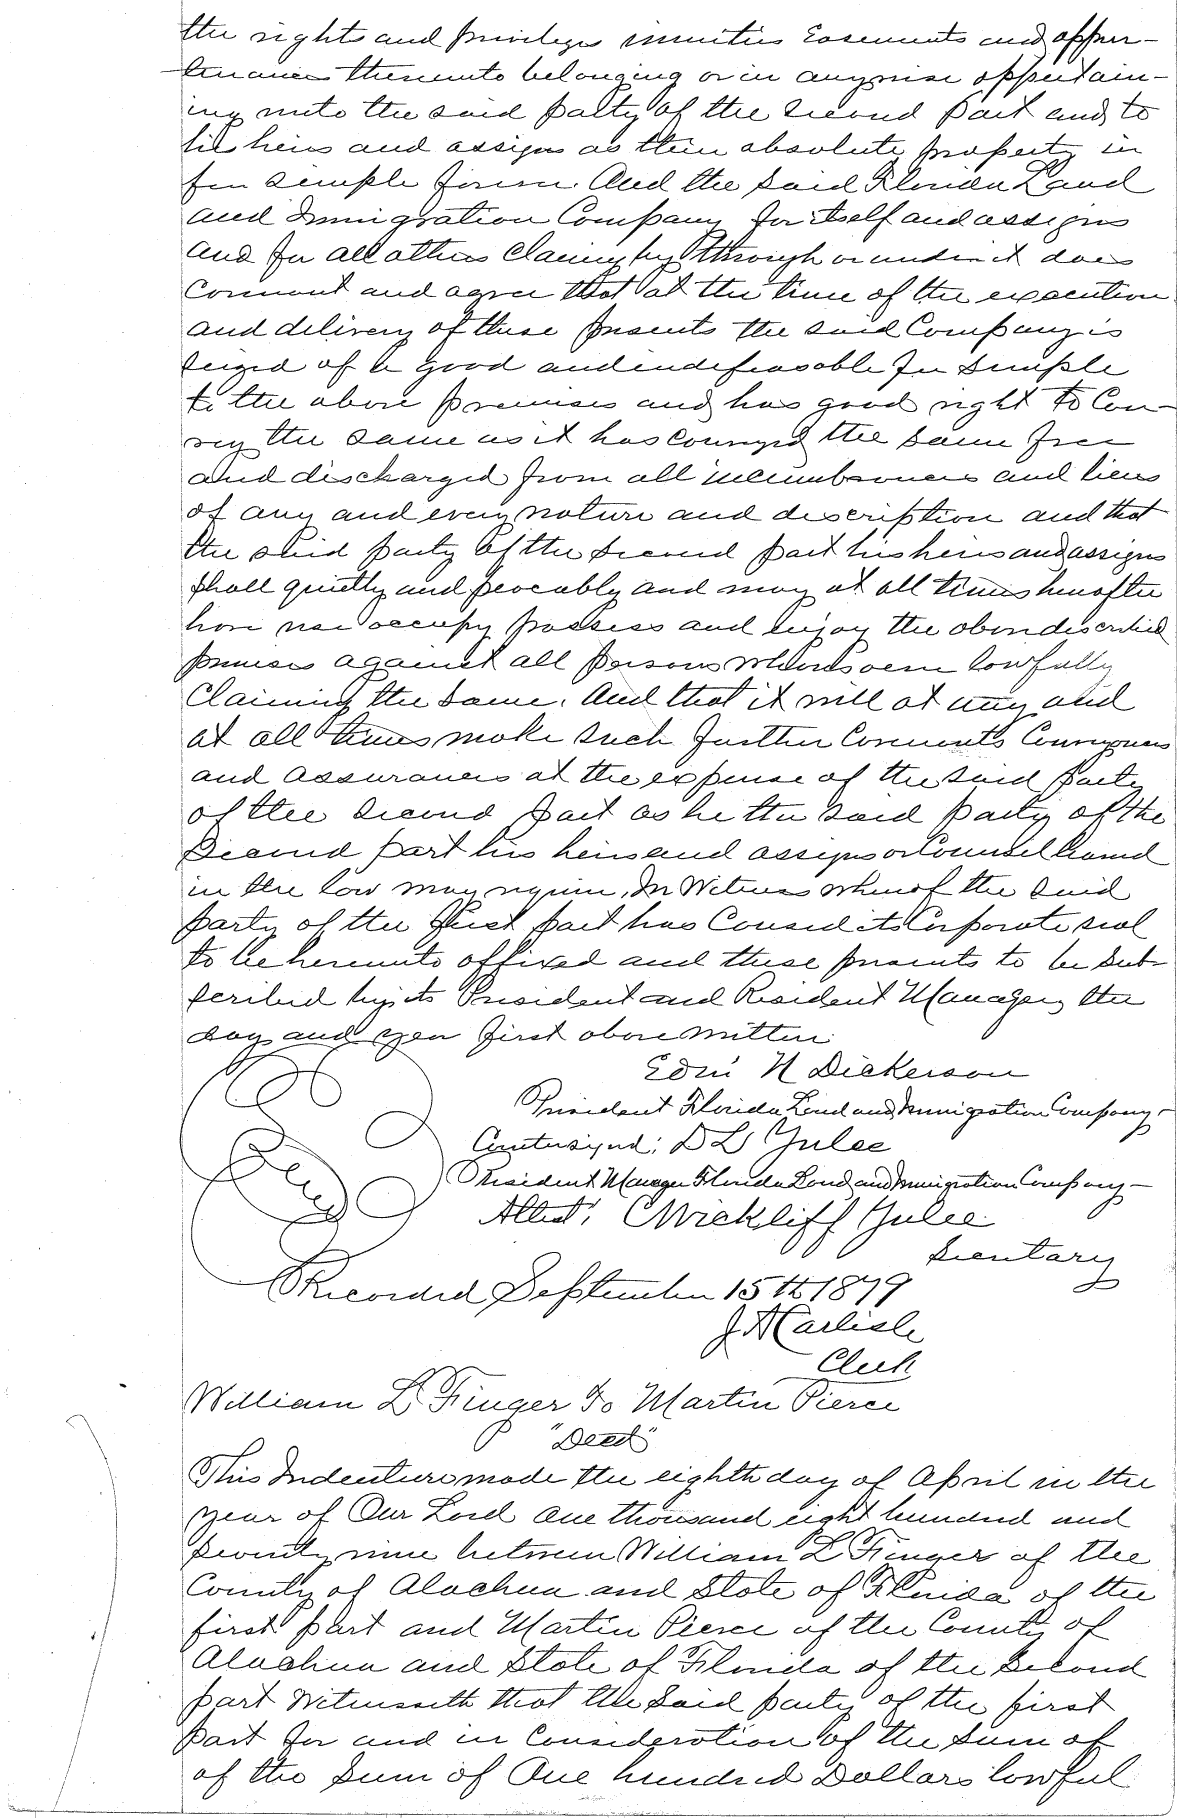 the rights and privileges immuities Easements and appur-
tenances thereunto belonging or in anywise appertain-
ing unto the said party of the second part and to
his heirs and assigns as their absolute property in
fee simple forever. And the said Florida Land
and Immigration Company for itself and assigns
and for all others claiming by through or under it does
covenant and agree that at the time of the execution
and delivery of these presents the said Company is
seized of a good and indefeasable fee simple
to the above premises and has good right to Con-
vey the same as it has conveyed the same free
and discharged from all incumbrances and liens
of any and every nature and description and that
the said party of the second part his heirs and assigns
shall quietly and peacably and may at all times hereafter
have use occupy possess and enjoy the above described
premises against all persons whomsoever lawfully
Claiming the same. And that it will at any and
at all times make such further Covenants Conveyances
and assurances at the expense of the said party
of the second part as he the said party of the
Second part his heirs and assigns or Counsel learned
in the law may require. In Witness whereof the said
party of the first part has Caused its Corporate seal
to be hereunto affixed and these presents to be sub-
scribed by its President and Resident Manager, the
day and year first above written
Edw N Dickerson
President Florida Land and Immigration Company-
Countersigned: D L Yulee
Resident Manager Florida Land and Immigration Company-
Attest: C Wickliff Yulee
Secretary
Seal
Recorded September 15th 1879
J A Carlisle
Clerk
William L Finger To Martin Pierce
"Deed"
This Indenture made the eighth day of April in the
year of Our Lord One thousand eight hundred and
seventy nine between William L Finger of the
County of Alachua and State of Florida of the
first part and Martin Pierce of the County of
Alachua and State of Florida of the Second
part Witnesseth that the said party of the first
part for and in Consideration of the sum of
of the sum of One hundred Dollars lawful